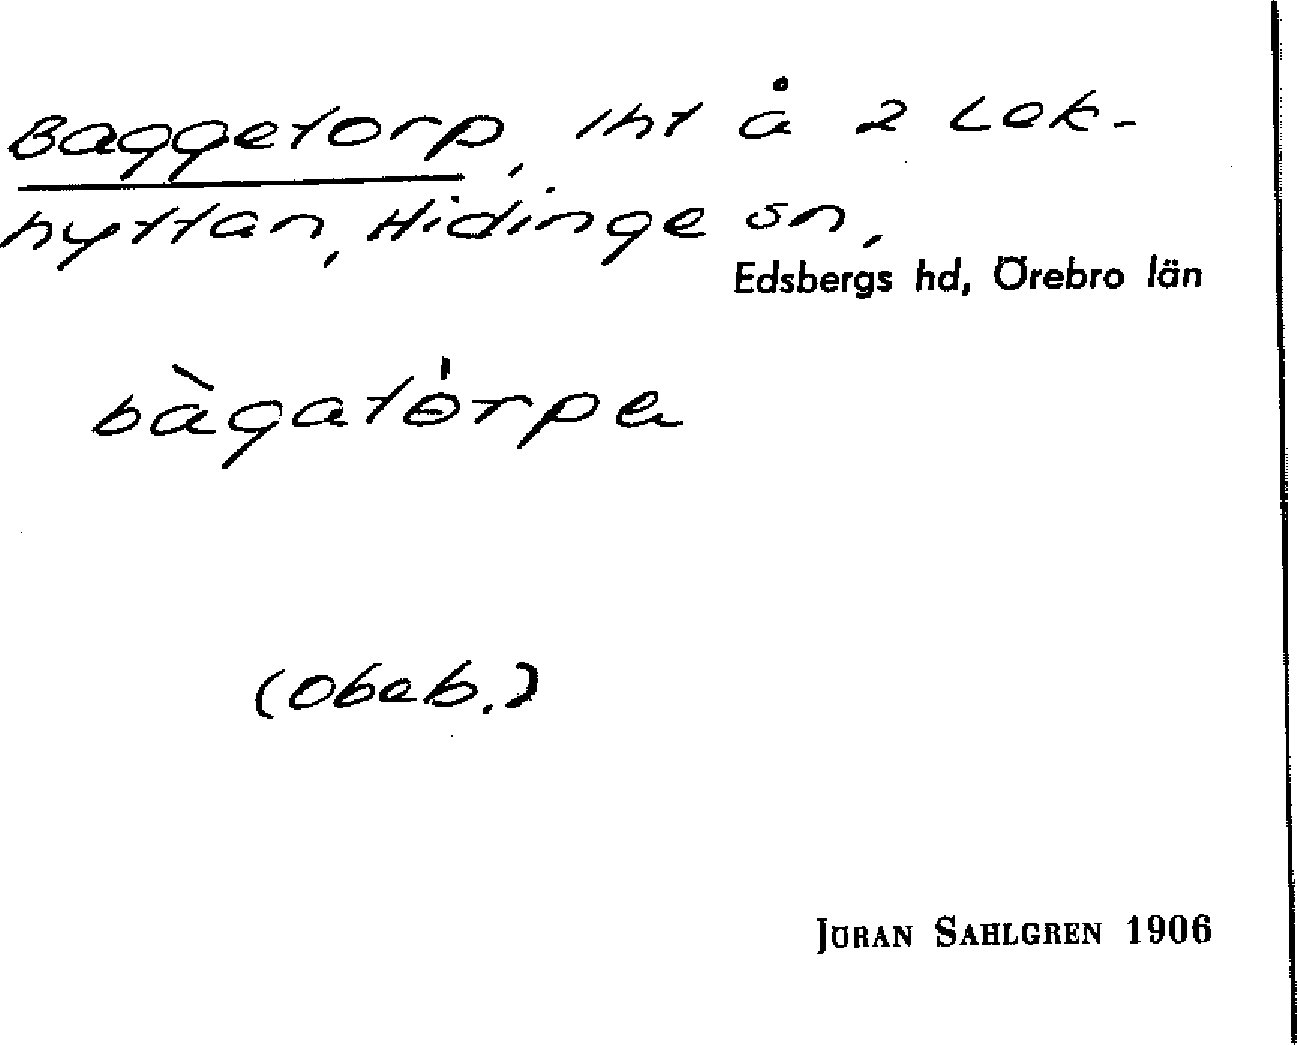 Baggetorp, lht å 2 Lek-
hyttan, Hidinge sn,
Edsbergs hd, Örebro län
bàgatórpa
(Obeb.)
JÖRAN SAHLGREN 1906